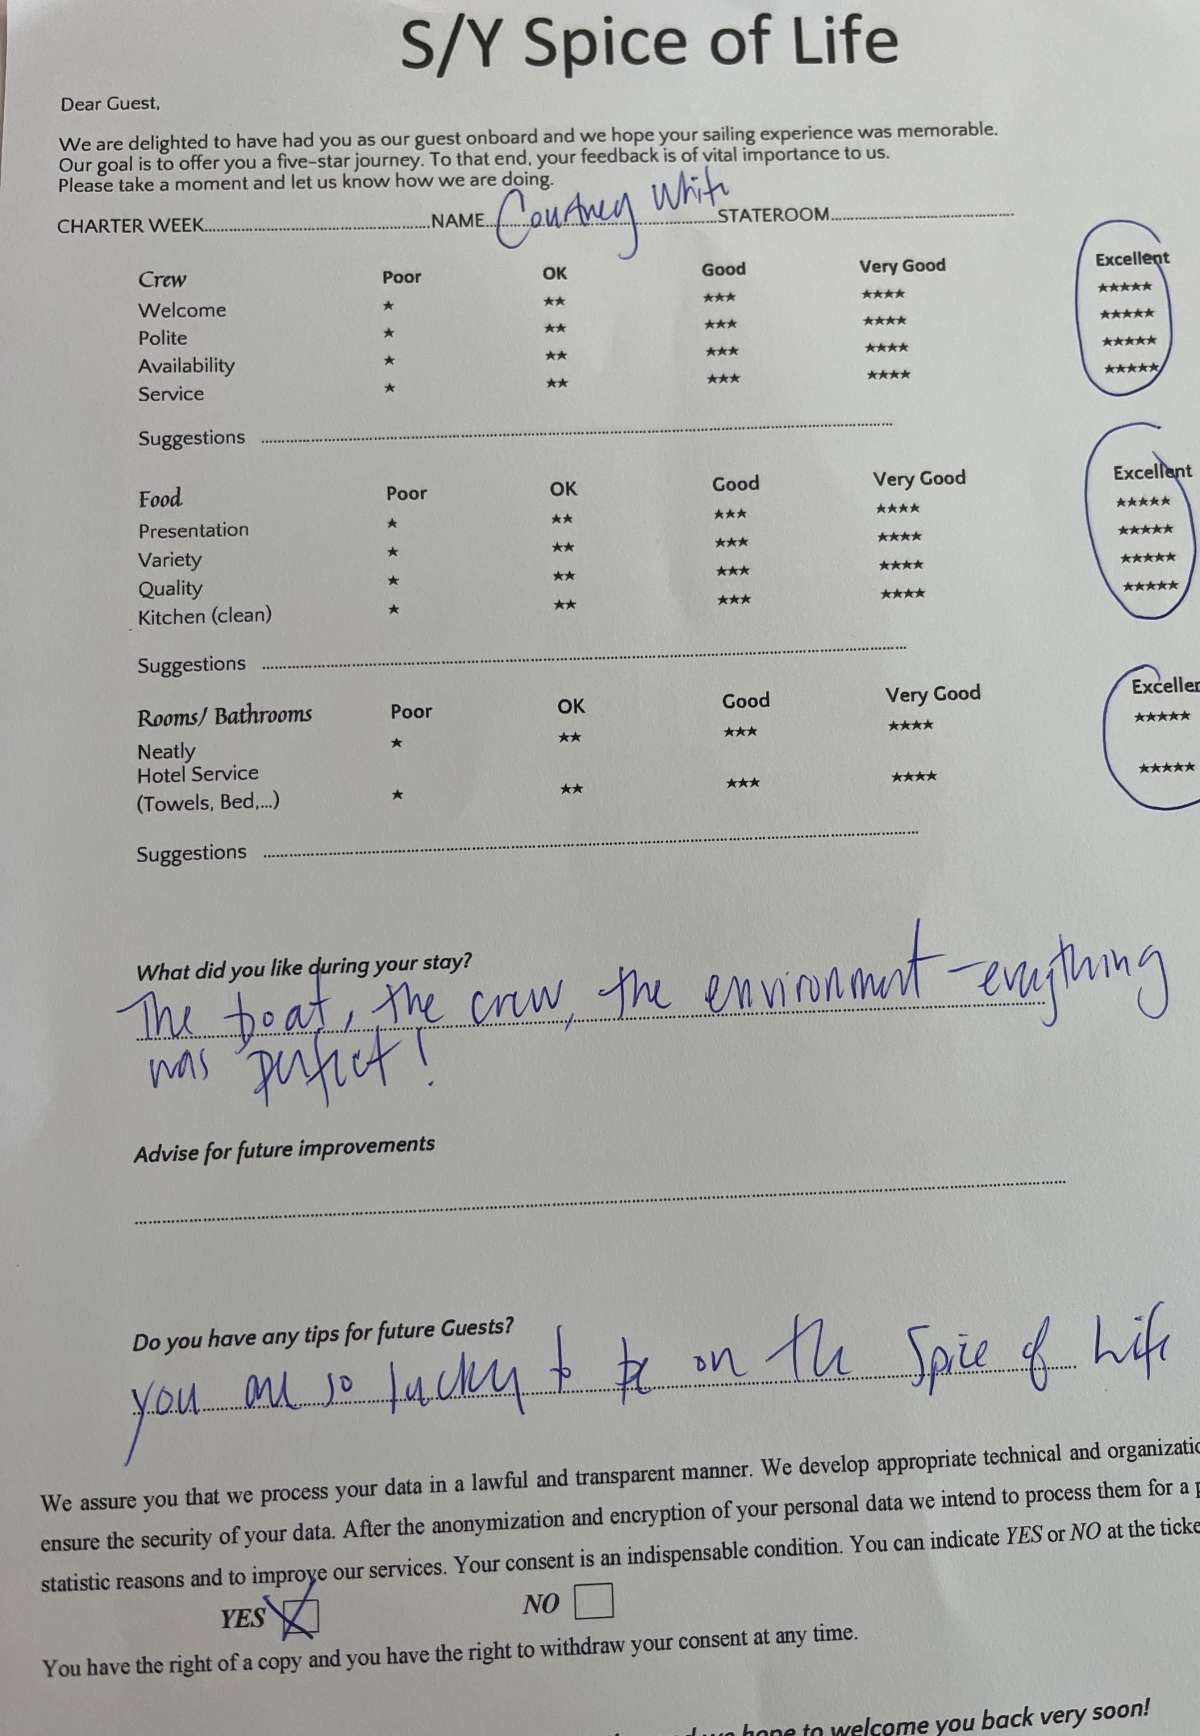 S/Y Spice of Life
Dear Guest,
We are delighted to have had you as our guest onboard and we hope your sailing experience was memorable.
Our goal is to offer you a five-star journey. To that end, your feedback is of vital importance to us.
Please take a moment and let us know how we are doing.
CHARTER WEEK.......................................................NAME...Courtney White...STATEROOM...........................................
Crew Poor OK Good Very Good Excellent
Welcome ★ ★★ ★★★ ★★★★ ★★★★★
Polite ★ ★★ ★★★ ★★★★ ★★★★★
Availability ★ ★★ ★★★ ★★★★ ★★★★★
Service ★ ★★ ★★★ ★★★★ ★★★★★
Suggestions ................................................................
Food Poor OK Good Very Good Excellent
Presentation ★ ★★ ★★★ ★★★★ ★★★★★
Variety ★ ★★ ★★★ ★★★★ ★★★★★
Quality ★ ★★ ★★★ ★★★★ ★★★★★
Kitchen (clean) ★ ★★ ★★★ ★★★★ ★★★★★
Suggestions ................................................................
Rooms/ Bathrooms Poor OK Good Very Good Exceller
Neatly ★ ★★ ★★★ ★★★★ ★★★★★
Hotel Service
(Towels, Bed,...) ★ ★★ ★★★ ★★★★ ★★★★★
Suggestions ................................................................
What did you like during your stay?
The boat, the crew, the environment - everything
was perfect!
Advise for future improvements
................................................................
Do you have any tips for future Guests?
you are so lucky to be on the Spice of Life
We assure you that we process your data in a lawful and transparent manner. We develop appropriate technical and organizatio
ensure the security of your data. After the anonymization and encryption of your personal data we intend to process them for a p
statistic reasons and to improve our services. Your consent is an indispensable condition. You can indicate YES or NO at the ticke
YES NO
You have the right of a copy and you have the right to withdraw your consent at any time.
hope to welcome you back very soon!